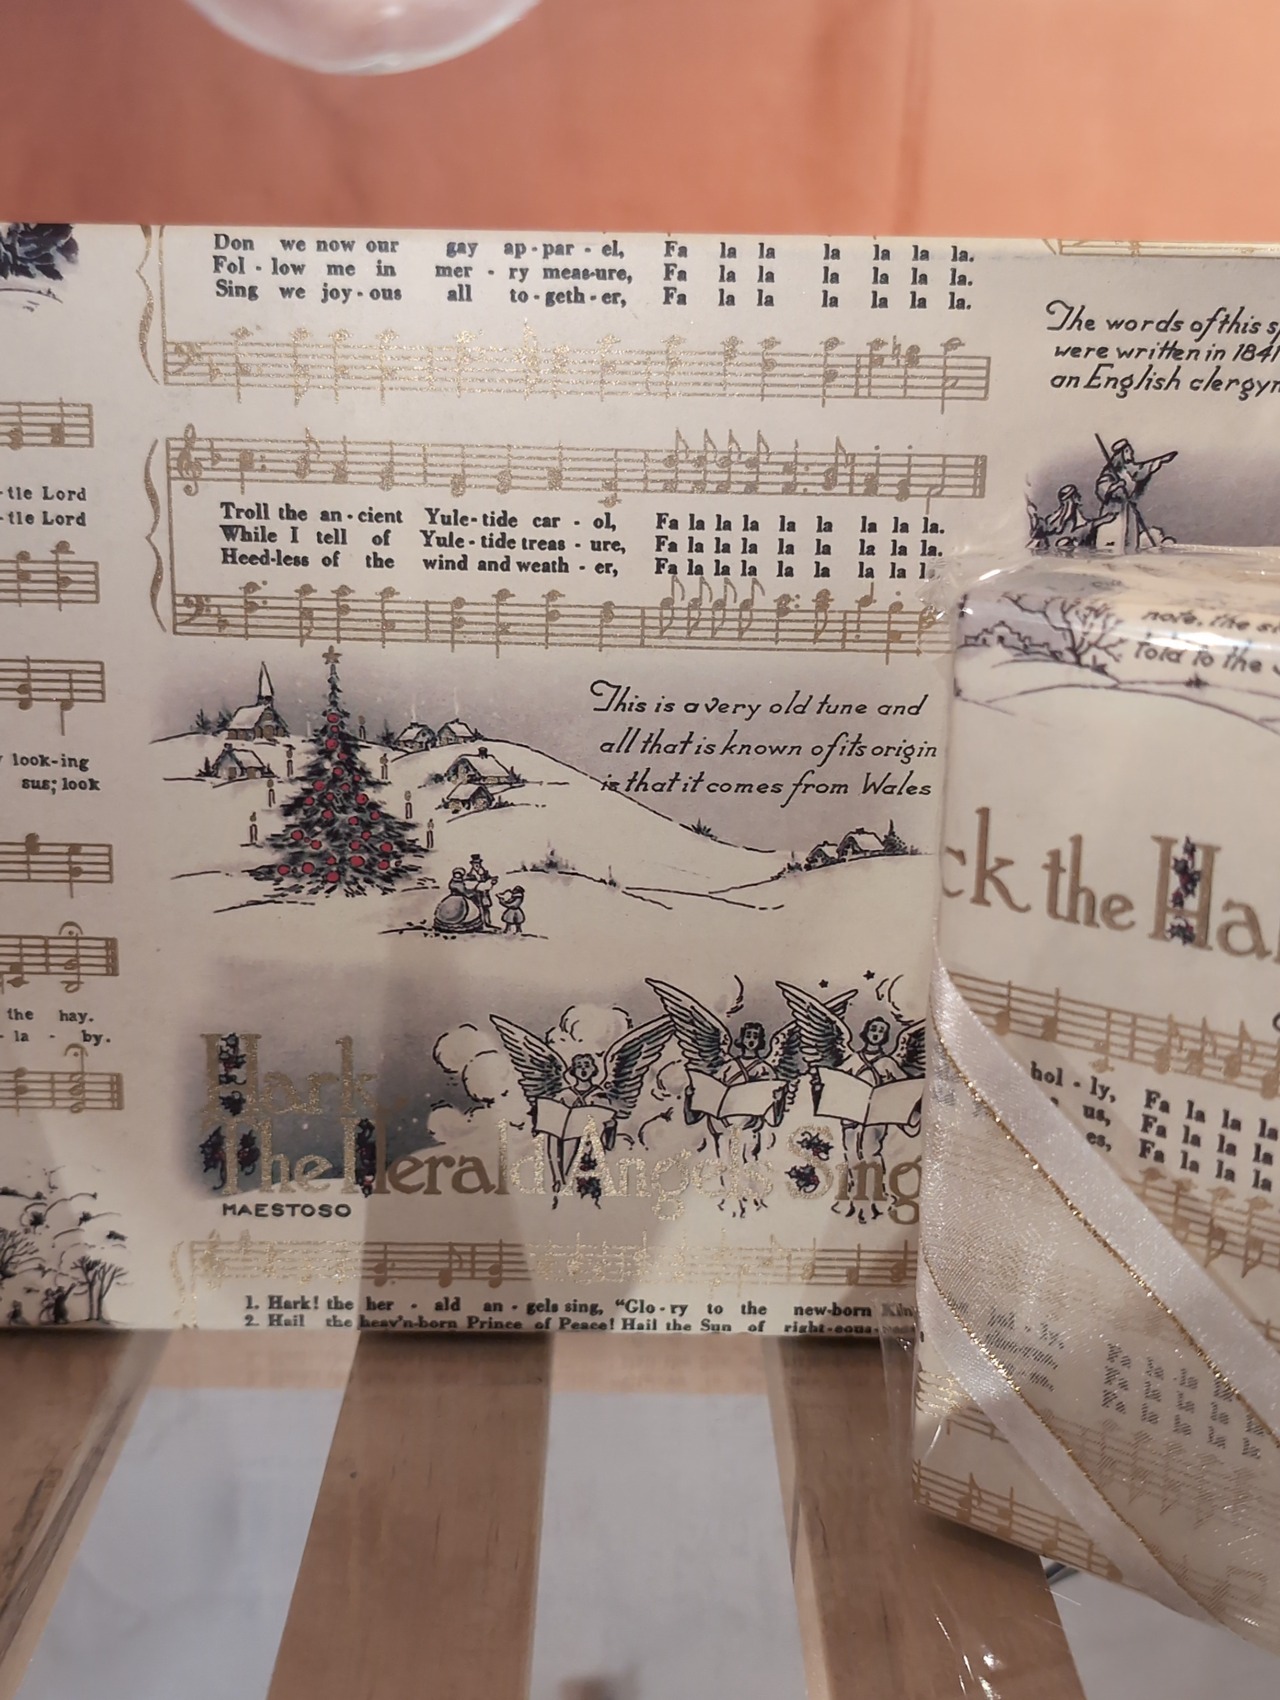 Don we now our gay ap - par - el, Fa la la la la la la.
Fol - low me in mer - ry meas-ure, Fa la la la la la la.
Sing we joy - ous all to - geth - er, Fa la la la la la la.
The words of this
were written in 1841
an English
-tle Lord
-tle Lord
Troll the an - cient Yule - tide car - ol, Fa la la la la la la la la.
While I tell of Yule - tide treas - ure, Fa la la la la la la la la.
Heed-less of the wind and weath - er, Fa la la la la la la la
look-ing
sus; look
This is a very old tune and
all that is known of its origin
is that it comes from Wales
the hay.
- la - by.
Hark,
The Herald Angels Sing
MAESTOSO
1. Hark! the her - ald an - gels sing, "Glo - ry to the new-born
2. Hail the heav'n-born Prince of Peace! Hail the Sun of right-eous-
note, the
Told to the
ck the Ha
hol - ly, Fa la la la la
us, Fa la la la la
es, Fa la la la la